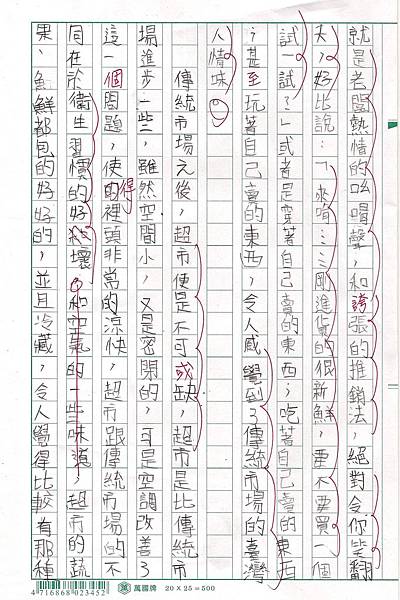 就是老闆熱情的吆喝聲，和誇張的推銷法，絕對令你笑翻
天，好比說：「來唷……剛進貨的很新鮮，要不要買一個
試一試？」或者是穿著自己賣的東西；吃著自己賣的東西
；甚至玩著自己賣的東西，令人感覺到了傳統市場的臺灣
人情味。
傳統市場完後，超市便是不可或缺，超市是比傳統市
場進步一些，雖然空間小，又是密閉的，可是空調改善了
這一個問題，使的得裡頭非常的涼快，超市跟傳統市場的不
同在於衛生習慣的好壞。和空氣的一些味道，超市的蔬
果、魚鮮都包的好好的，並且冷藏，令人覺得比較有那種
4716868023452 萬國牌 20 X 25 = 500